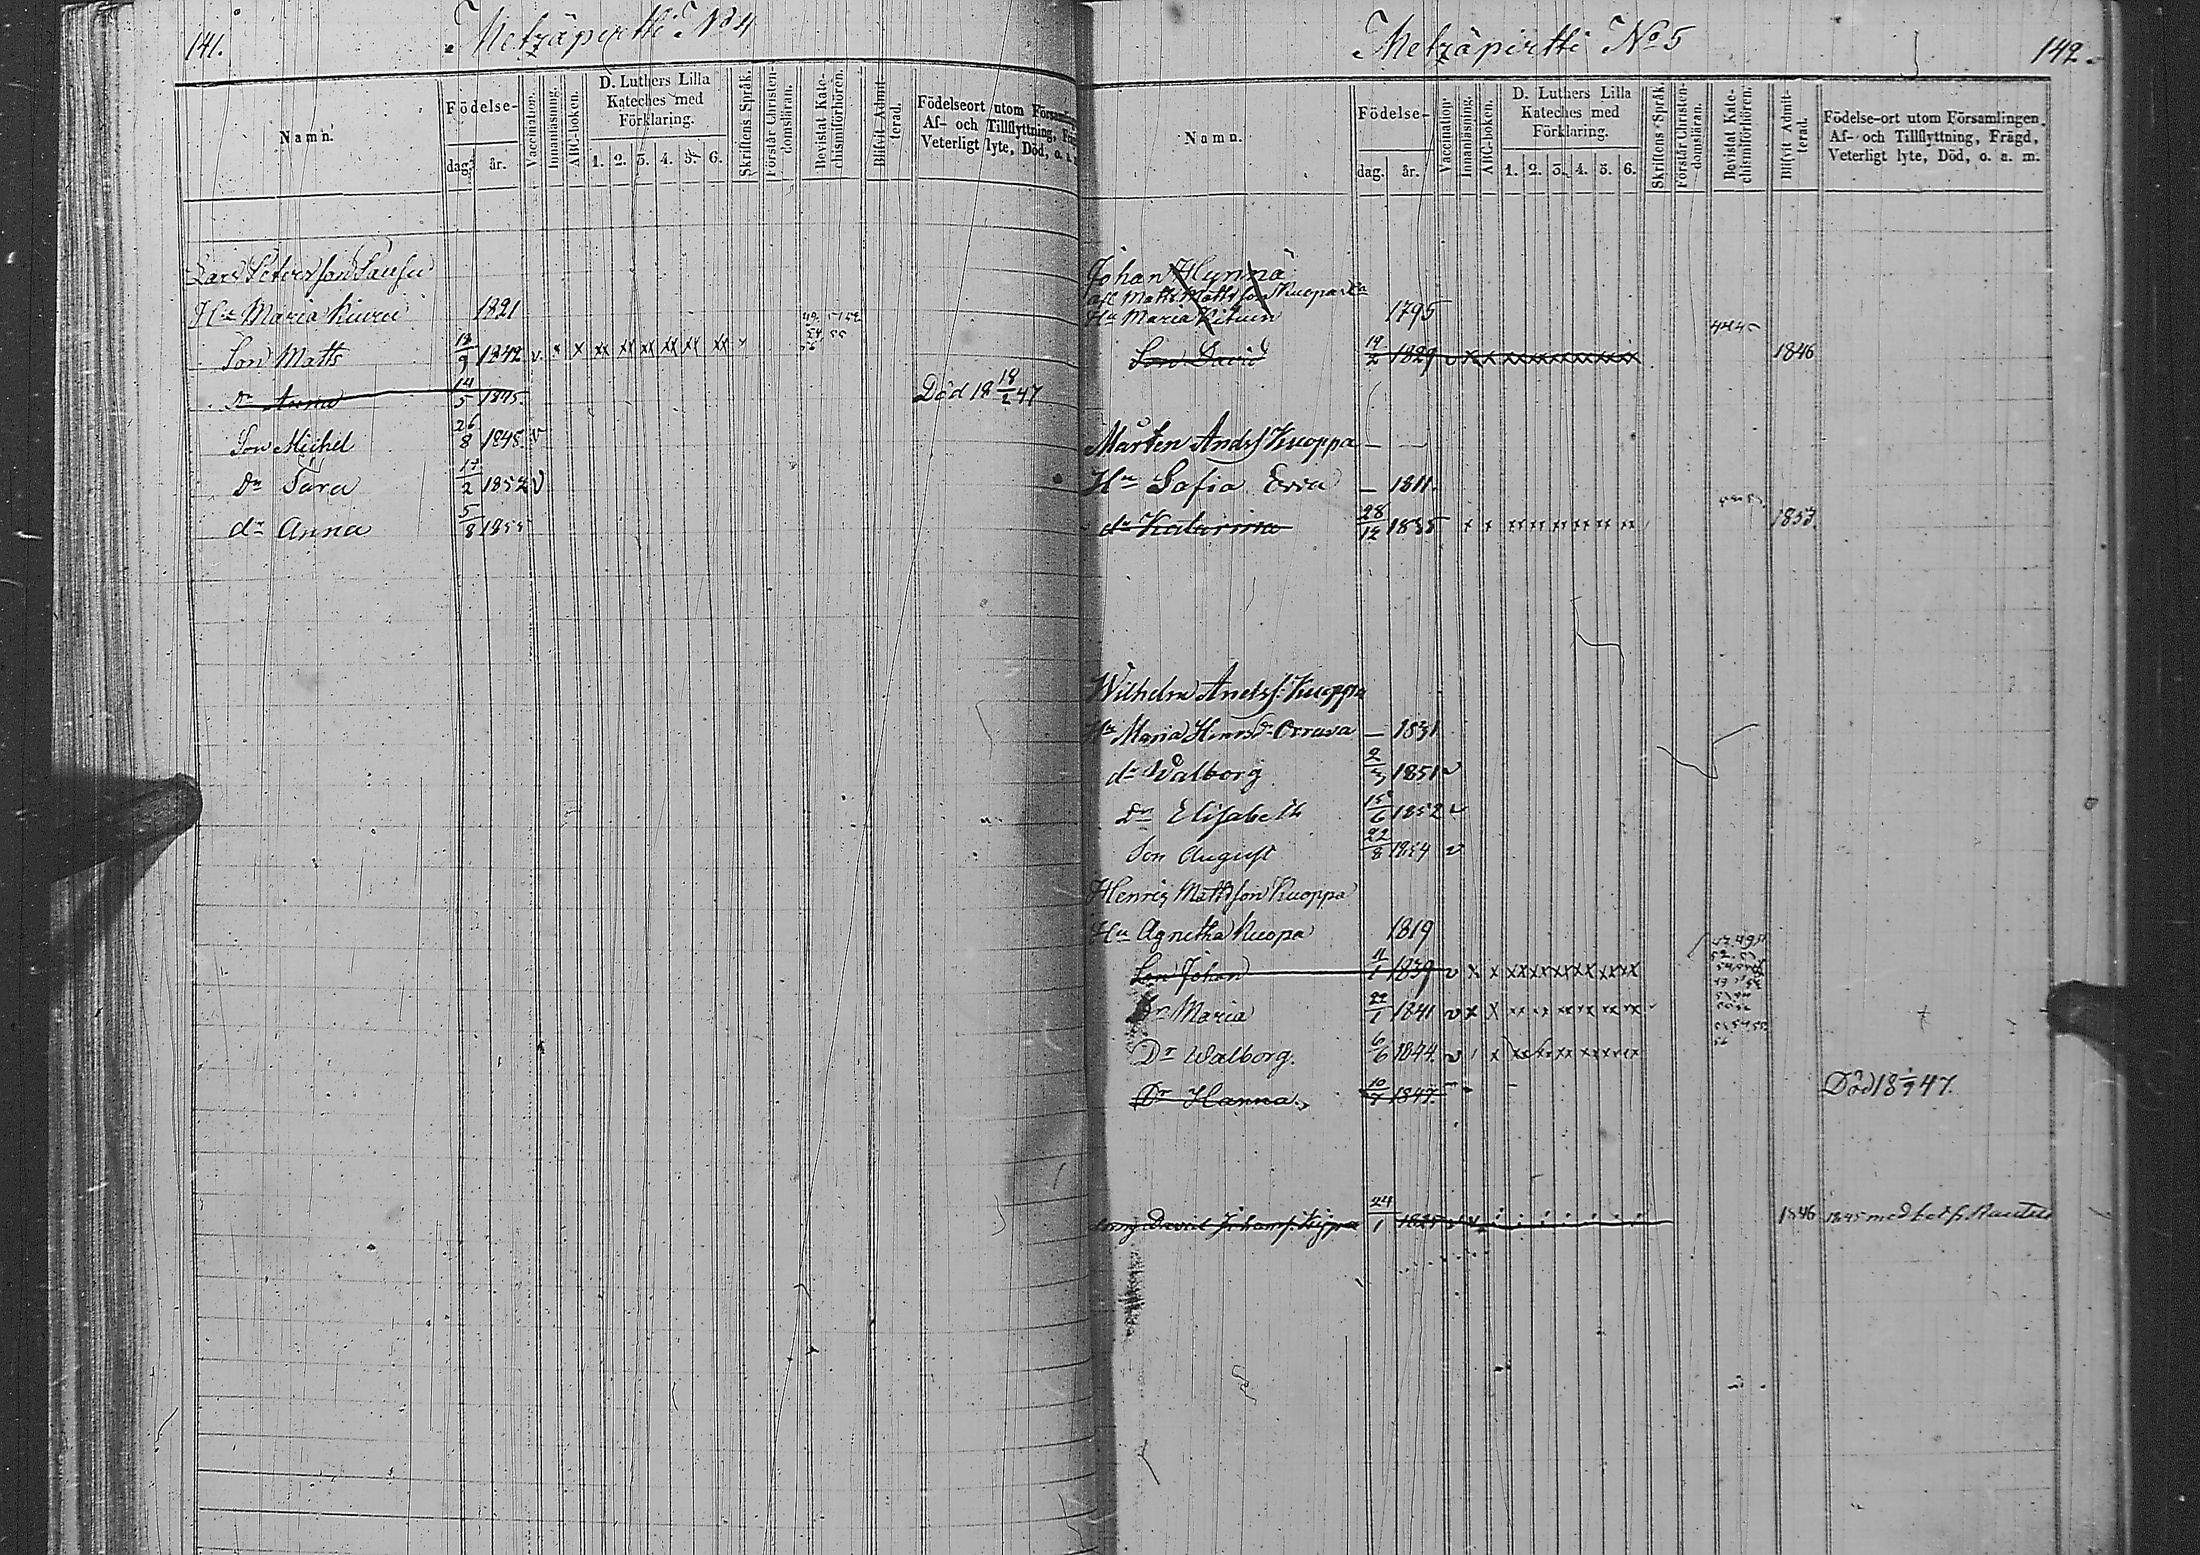 141.
Metzäpirtti No 4
Namn.
Födelse-
dag. år.
Vaccination.
Innanläsning.
ABC-boken.
D. Luthers Lilla
Kateches med
Förklaring.
1. 2. 3. 4. 5. 6.
Skriftens Språk.
Förstår Christen-
domsläran.
Bevistat Kate-
chismiförhören.
Blifvit Admit-
terad.
Födelseort utom Församlin
Af- och Tillflyttning, Fräg
Veterligt lyte, Död, o. a. m
Lars Peterson
Hu Maria Kiuru 1821
Son Matts 13/9 1842 v x x xx xx xx xx xx xx
Dr Anna 14/5 Död 18 18/2 47
Son Michel 26/8 1848. v
Dr Sara 17/2 1852 v
dr Anna 5/8 1855
Metzäpirtti No 5
142.
Namn.
Födelse-
dag. år.
Vaccination.
Innanläsning.
ABC-boken.
D. Luthers Lilla
Kateches med
Förklaring.
1. 2. 3. 4. 5. 6.
Skriftens Språk.
Förstår Christen-
domsläran.
Bevistat Kate-
chismiförhören.
Blifvit Admit-
terad.
Födelse-ort utom Församlingen,
Af- och Tillflyttning, Frägd,
Veterligt lyte, Död, o. a. m.
Johan Hynnä
Matts Mattsson
Hu Maria 1795
Son David 19/2 1829 v x x xx xx xx xx xx xx 1846
Mårten Andsf Kuoppa — —
Hu Sofia — 1811.
dr Katarina 28/12 1835 x x xx xx xx xx xx xx 1853
Wilhelm Andsf. Kuoppa
Hu Maria Henrsdr Orrava — 1831
dr Walborg 1851 v
Dr Elisabeth 15/6 1852 v
Son August 22/8 1854 v
Henric Mattsson Kuoppa
Hu Agnetha Kuopa 1819
Son Johan 11/1 1839 v x x xx xx xx xx xx xx
Dr Maria 22/1 1841 v x x xx xx xx xx xx xx
Dr Walborg. 6/6 1844. v x xx xx xx xx xx xx
Dr Hanna. 1847. Död 18 47.
David Johansf. 24/1 1825 1846 1845 med bet. f. Rautus